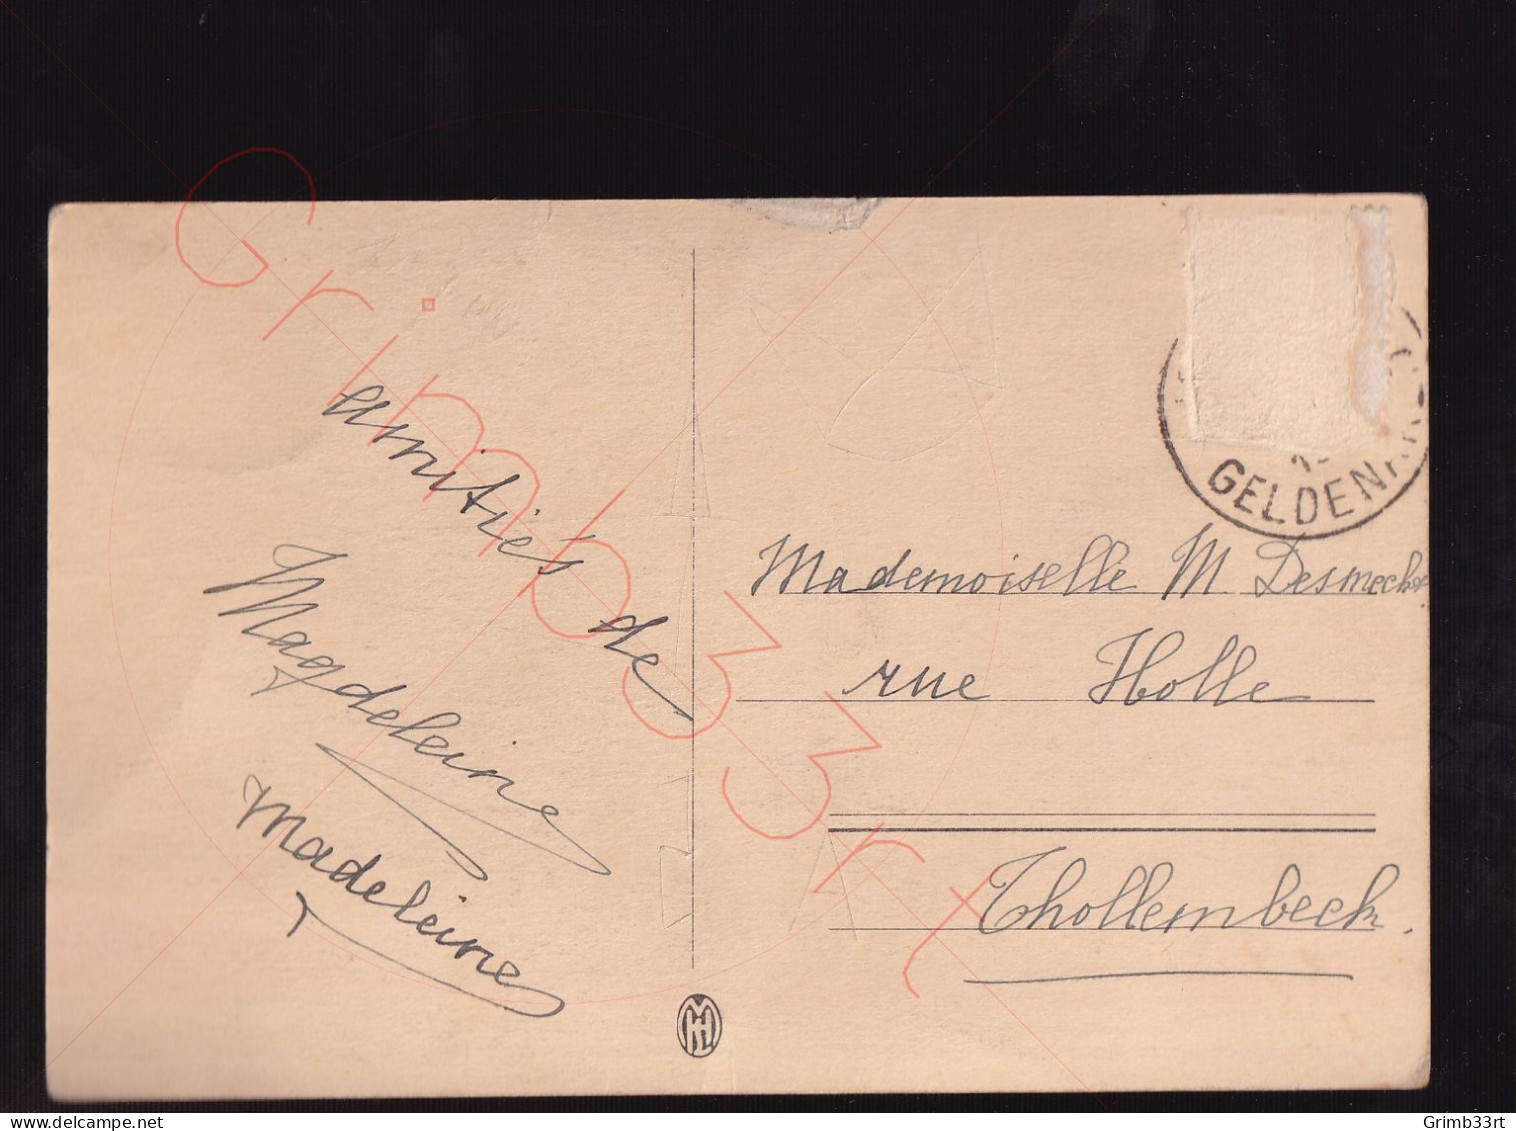 amitiés de
Magdeleine
Madeleine
GELDENA
Mademoiselle M Desmecht
rue Holle
Thollembeck.
Grimb33rt
www.delcampe.net
Grimb33rt